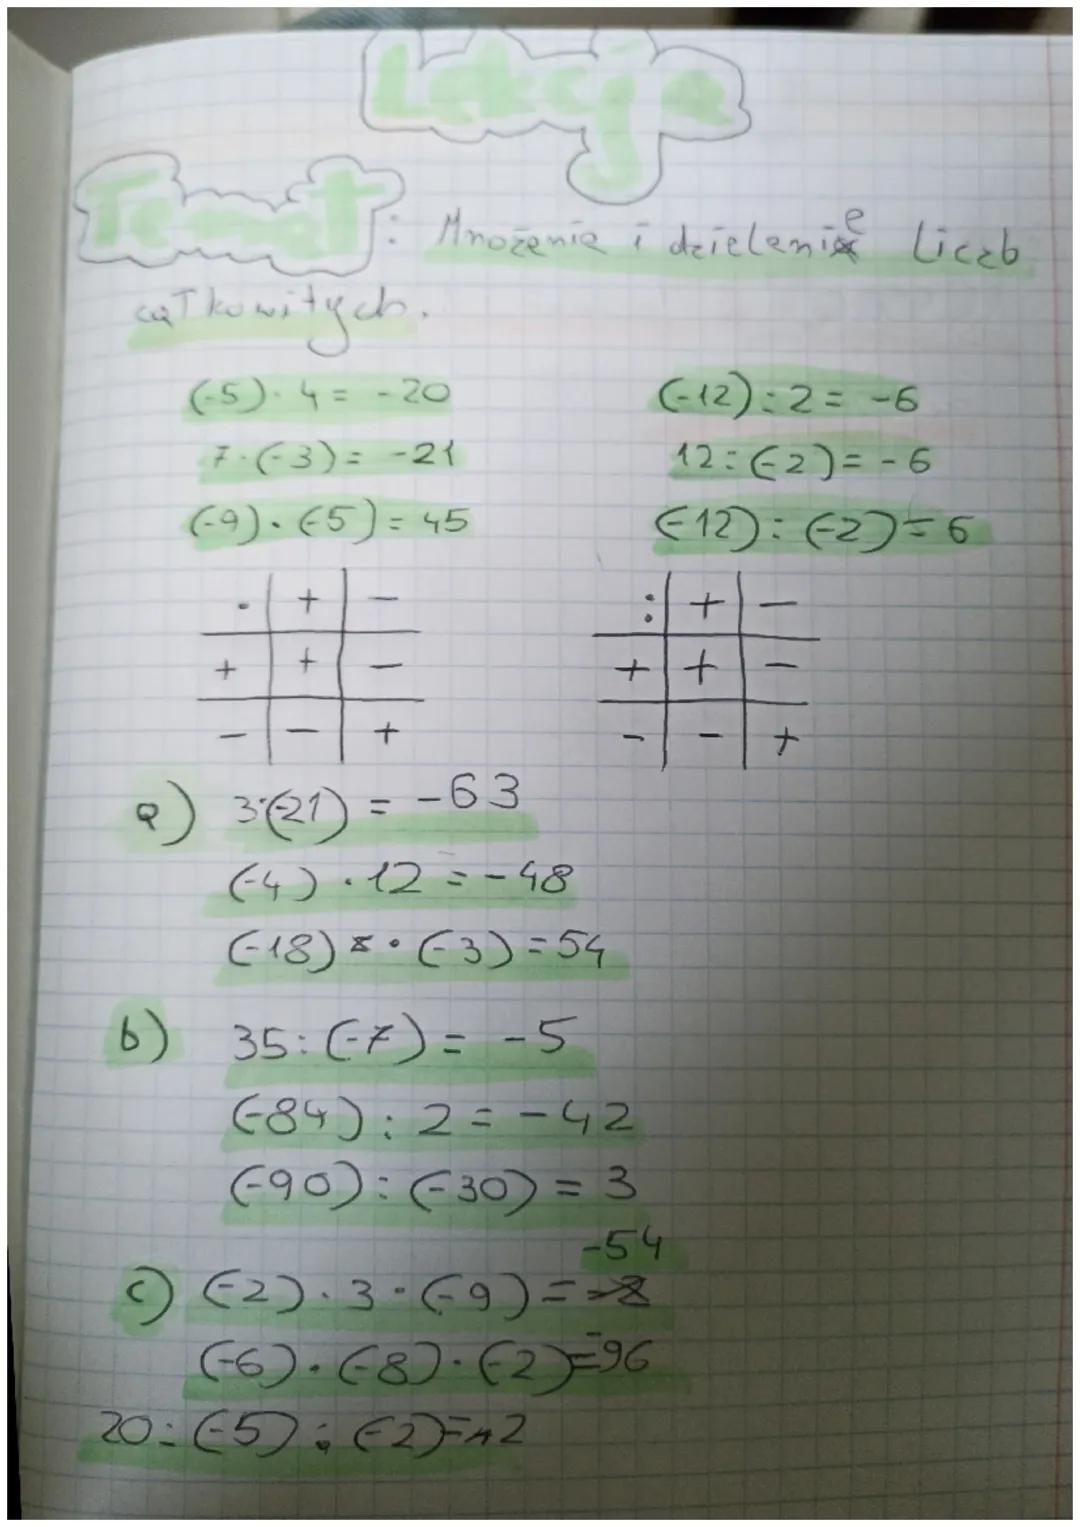 Lekcja
Temat: Mnożenie i dzielenie Liczb
całkowitych.
(-5) · 4 = -20
(-12) : 2 = -6
7 · (-3) = -21
12 : (-2) = -6
(-9) · (-5) = 45
(-12) : (-2) = 6
· + -
: + -
+ + -
+ + -
- - +
- - +
a) 3·(-21) = -63
(-4) · 12 = -48
(-18) · (-3) = 54
b) 35 : (-7) = -5
(-84) : 2 = -42
(-90) : (-30) = 3
-54
c) (-2) · 3 · (-9) =
(-6) · (-8) · (-2) = -96
20 : (-5) : (-2) = 2